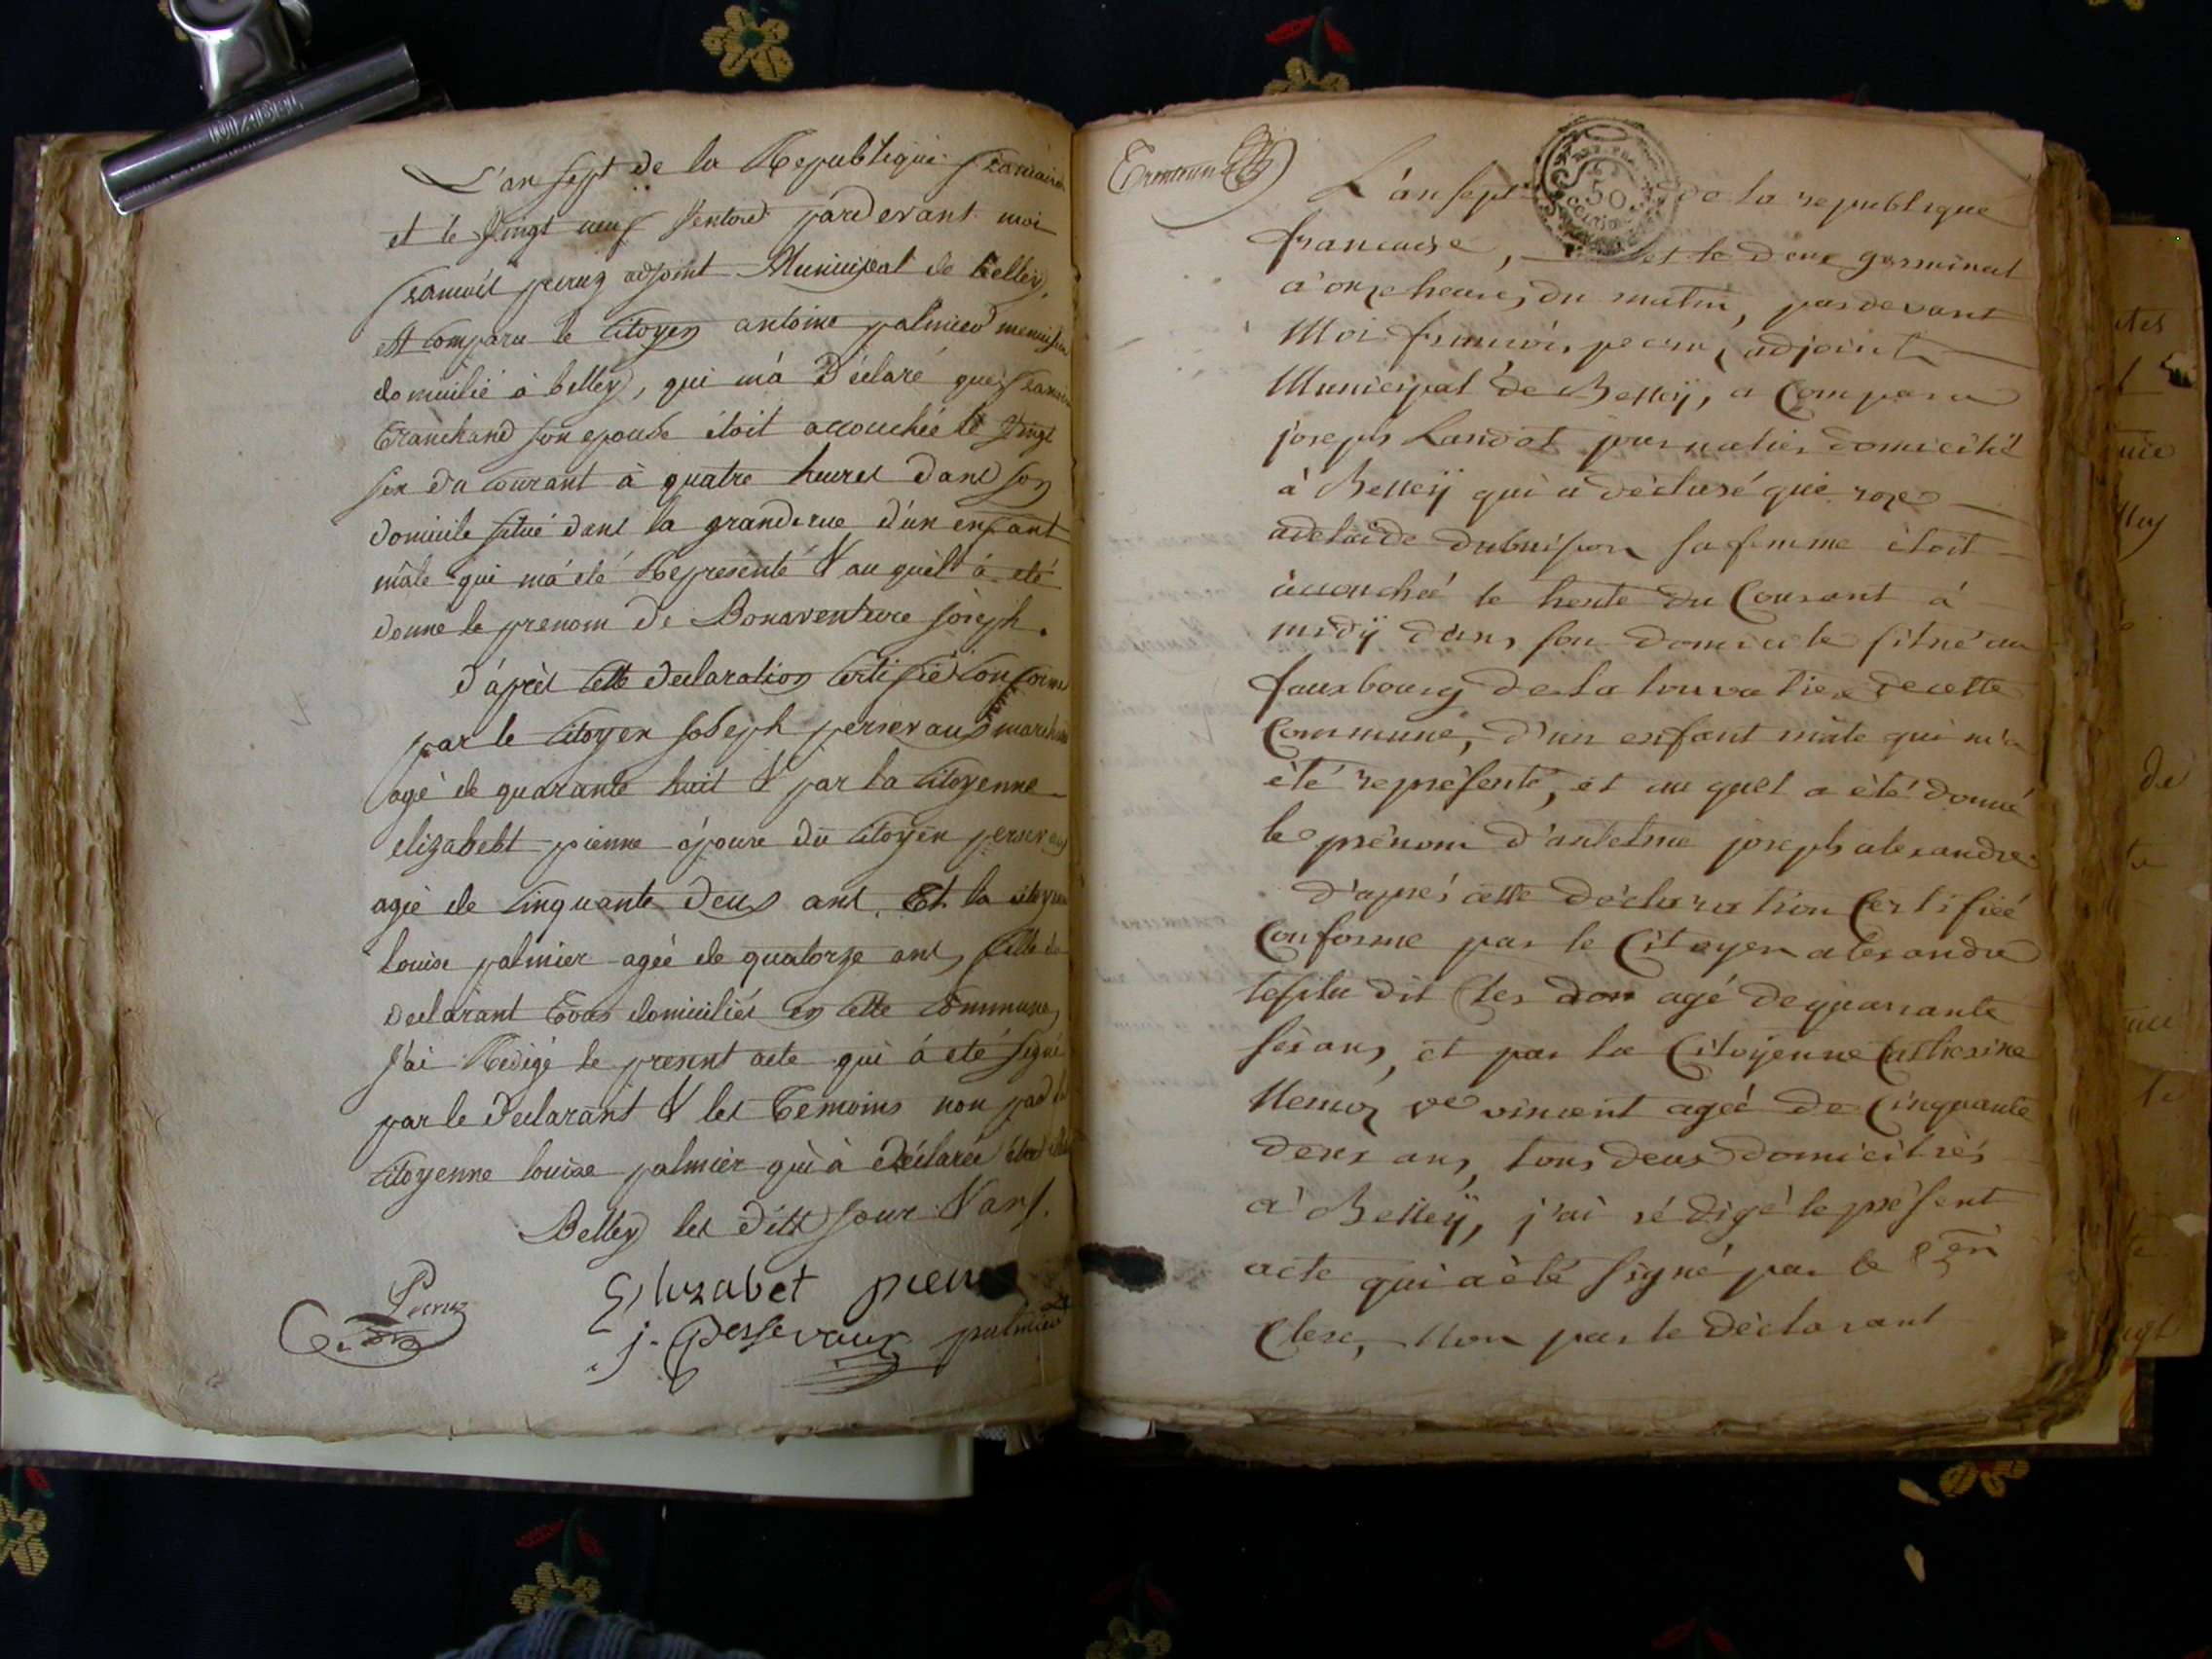 L'an sept de la Republique francaise
et le Vingt neuf Ventose pardevant moi
francois peruz adjoint Municipal de belley,
est comparu le Citoyen antoine palmier menuisier
domicilié à belley, qui m'a Déclaré que
tranchand son epouse étoit accouchée le Vingt
six du courant à quatre heures dans son
domicile situé dans la grande rue d'un enfant
mâle qui m'a été Représenté & auquel a été
donne le prenom de Bonaventure joseph.
d'après cette declaration certifié conforme
par le citoyen joseph persevaux marchand
agé de quarante huit & par la citoyenne
elizabebt pienne épouse du citoyen persevaux
agée de cinquante deux ans. Et la citoyenne
louise palmier agée de quatorze ans, fille du
declarant tous domiciliés en cette commune,
j'ai Redigé le present acte qui à été signé
par le declarant & les temoins non pas la
citoyenne louise palmier qui à déclarée
Belley les dits jour & an.
Peruz
Elizabet pien
j. Persevaux palmier
50
L'an sept de la republique
francaise, et le deux germinal
à onze heures du matin, pardevant
Moi francois peruz, adjoint
Municipal de Belleÿ, a Comparu
joseph Landot journalier domicilié
à Belleÿ qui a déclaré que roze
adelaïde dubuisson sa femme étoit
accouchée le trente du Courant à
midÿ dans son domicile situé au
fauxbourg de la de cette
Commune, d'un enfant mâle qui m'a
été représenté, et au quel a été donné
le prénom d'antelme joseph alexandre.
d'après cette déclaration Certifiée
Conforme par le Citoyen alexandre
dit agé de quarante
six ans, et par la Citoyenne Catherine
ve vincent agée de Cinquante
deux ans, tous deux domiciliés
à Belleÿ, j'ai rédigé le présent
acte qui a été signé par le cen
Clerc, Non par le déclarant